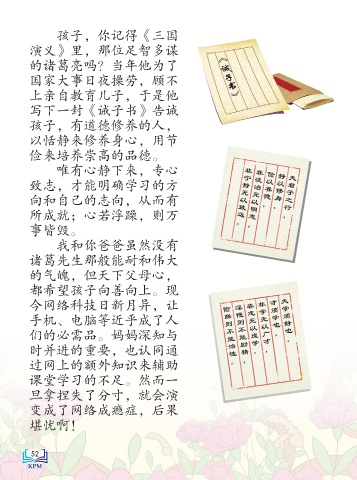 孩子，你记得《三国
演义》里，那位足智多谋
的诸葛亮吗？当年他为了
国家大事日夜操劳，顾不
上亲自教育儿子，于是他
写下一封《诫子书》告诫
孩子，有道德修养的人，
以恬静来修养身心，用节
俭来培养崇高的品德。
唯有心静下来，专心
致志，才能明确学习的方
向和自己的志向，从而有
所成就；心若浮躁，则万
事皆毁。
我和你爸爸虽然没有
诸葛先生那般能耐和伟大
的气魄，但天下父母心，
都希望孩子向善向上。现
今网络科技日新月异，让
手机、电脑等近乎成了人
们的必需品。妈妈深知与
时并进的重要，也认同通
过网上的额外知识来辅助
课堂学习的不足。然而一
旦拿捏失了分寸，就会演
变成了网络成瘾症，后果
堪忧啊！
《诫子书》
夫君子之行，
静以修身，
俭以养德，
非淡泊无以明志，
非宁静无以致远。
夫学须静也，
才须学也，
非学无以广才，
非志无以成学。
淫慢则不能励精，
险躁则不能治性。
52
KPM